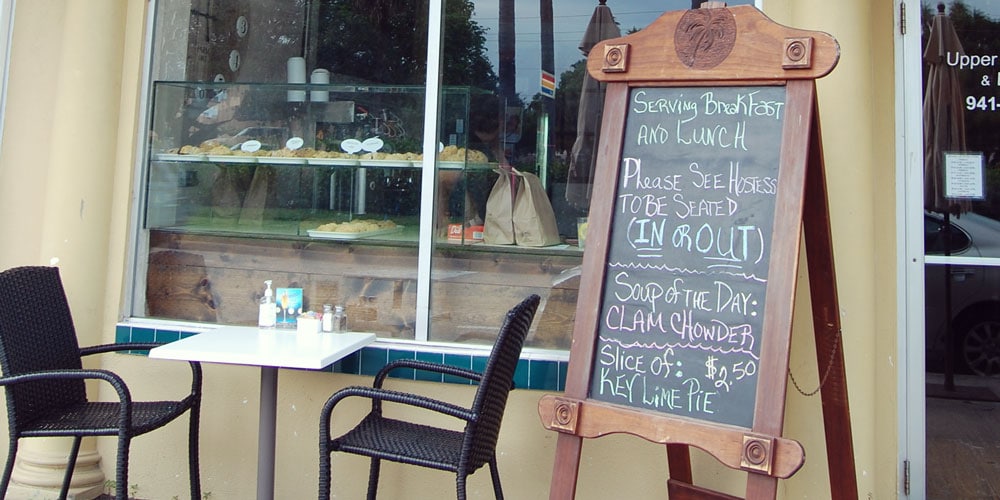 SERVING BREAKFAST
AND LUNCH
PLEASE SEE HOSTESS
TO BE SEATED
(IN OR OUT)
SOUP OF THE DAY:
CLAM CHOWDER
SLICE OF: $2.50
KEY LIME PIE
Upper
&
941-